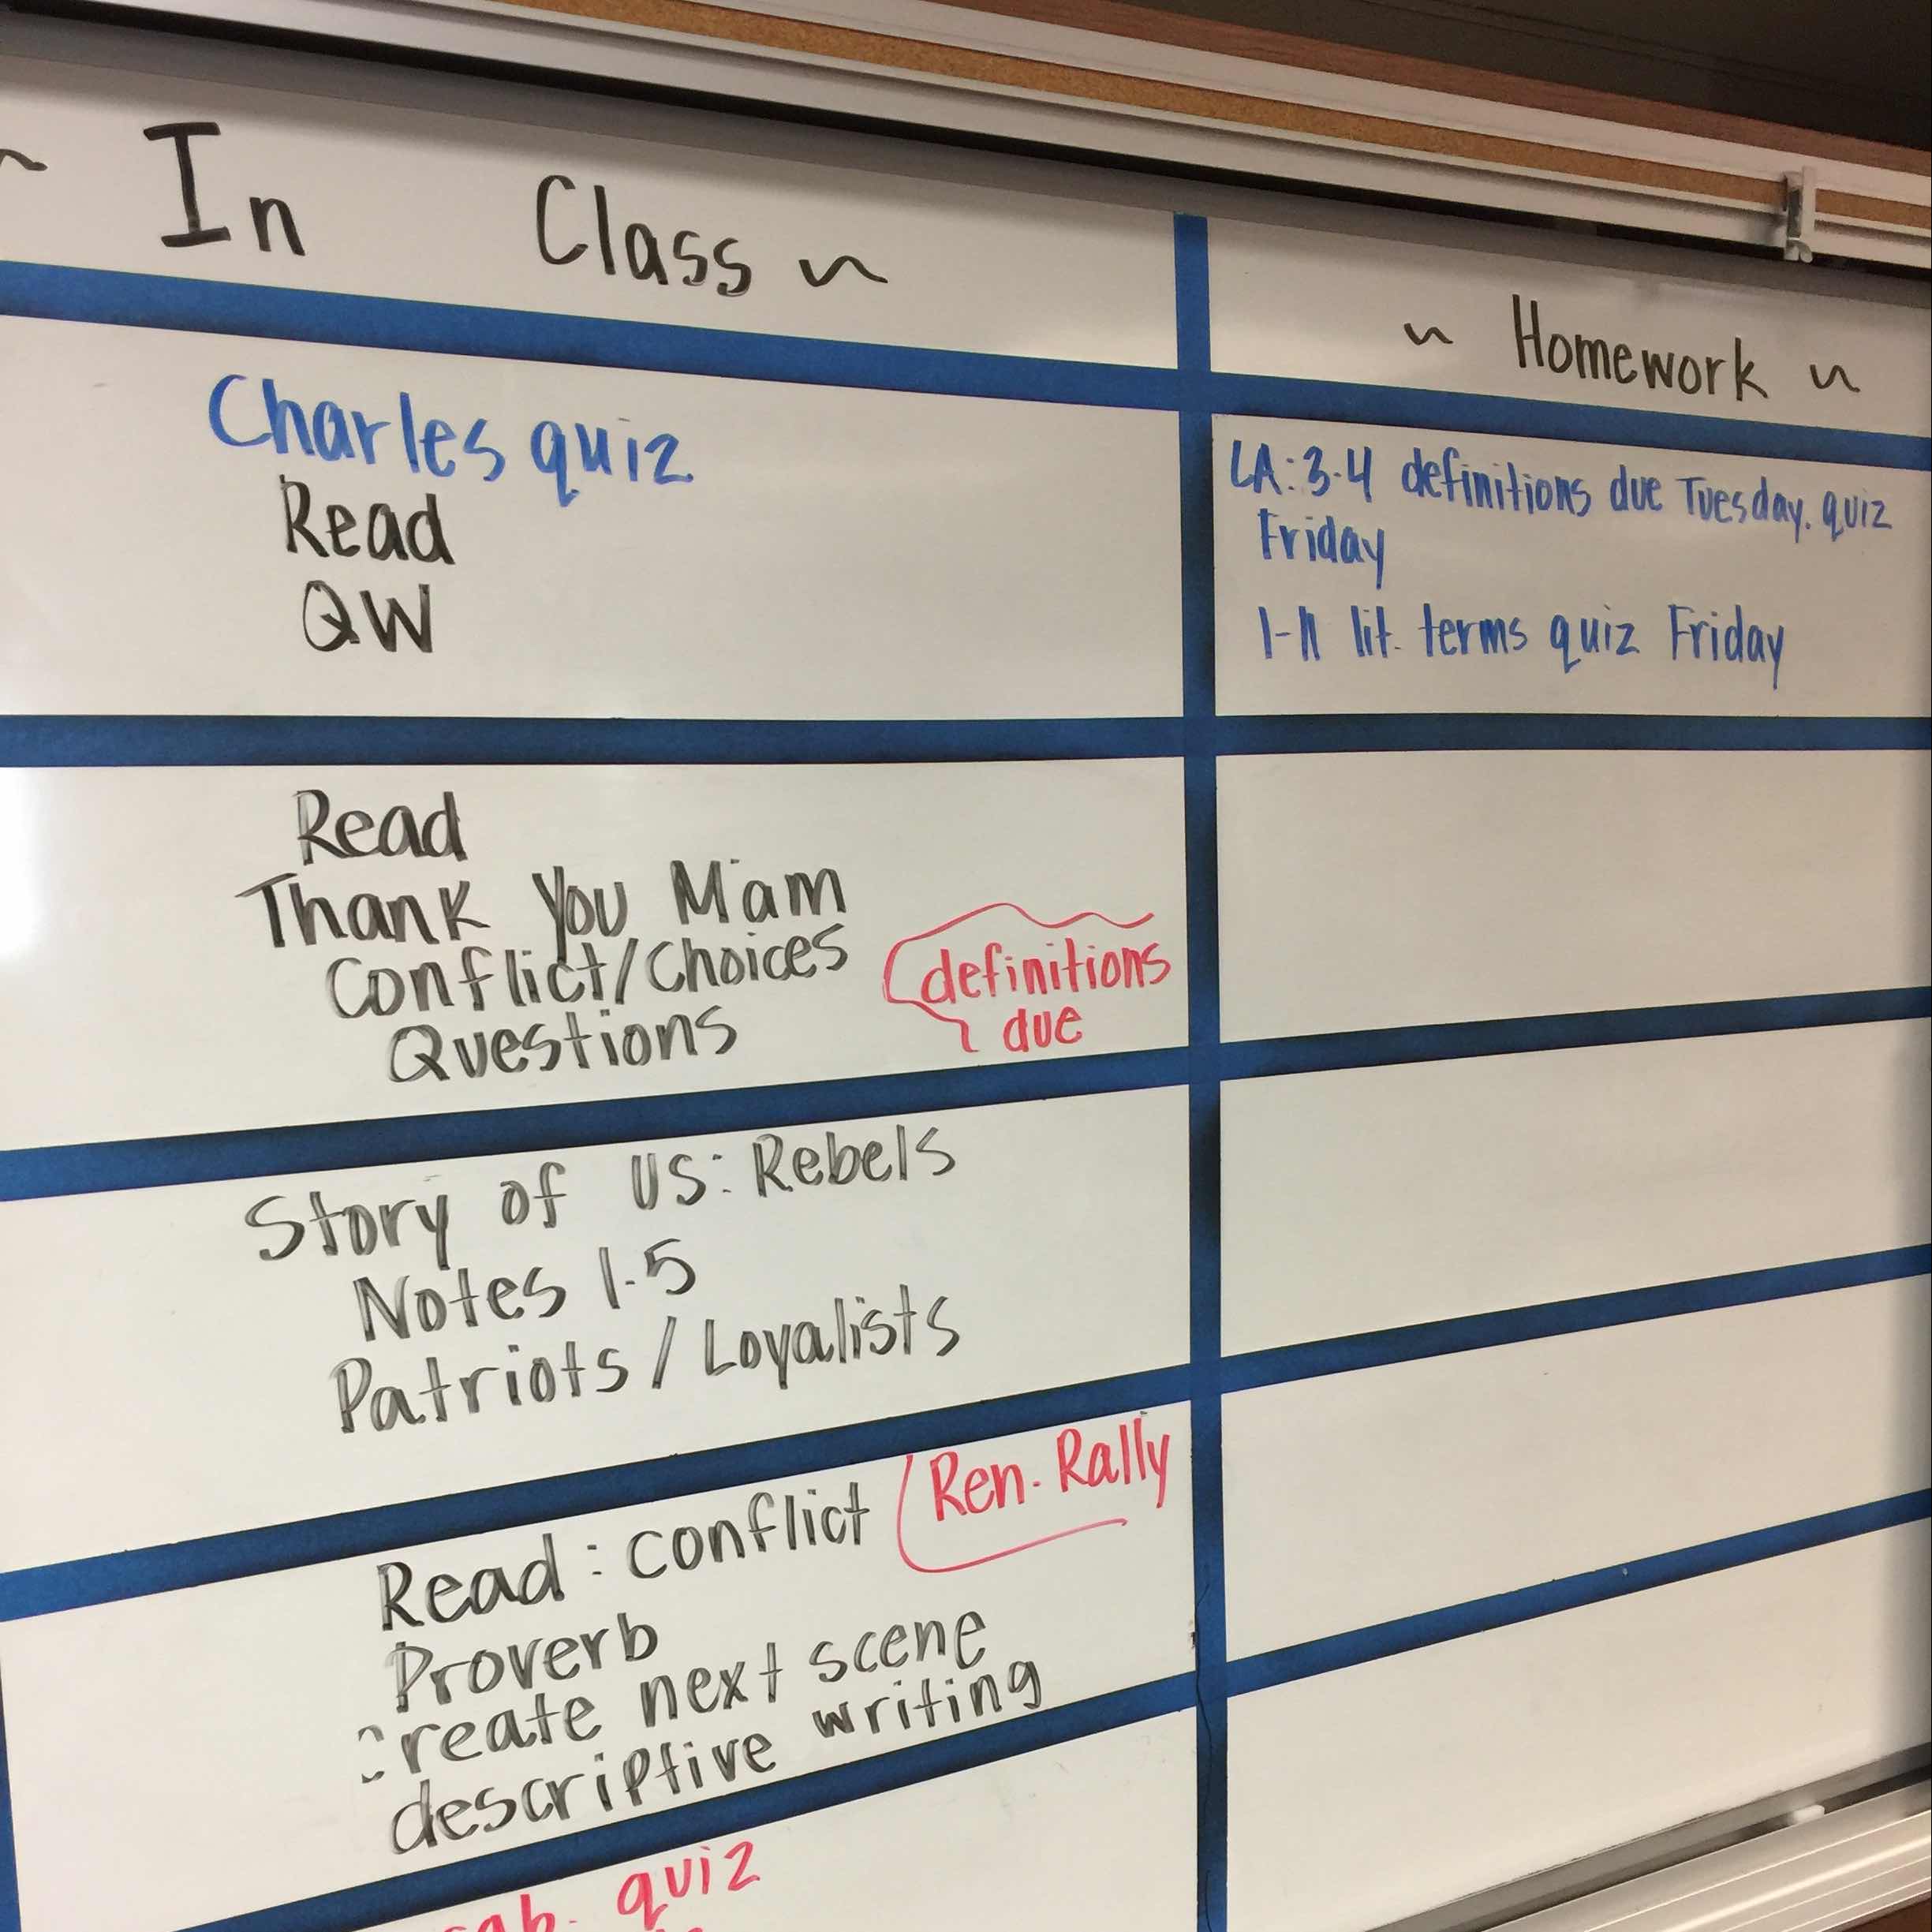 ~ In Class ~
~ Homework ~
Charles quiz
Read
QW
LA: 3-4 definitions due Tuesday. quiz
Friday
1-11 lit. terms quiz Friday
Read
Thank You M'am
Conflict/Choices
Questions
definitions
due
Story of US: Rebels
Notes 1.5
Patriots / Loyalists
Read: conflict
Ren. Rally
Proverb
create next scene
descriptive writing
quiz